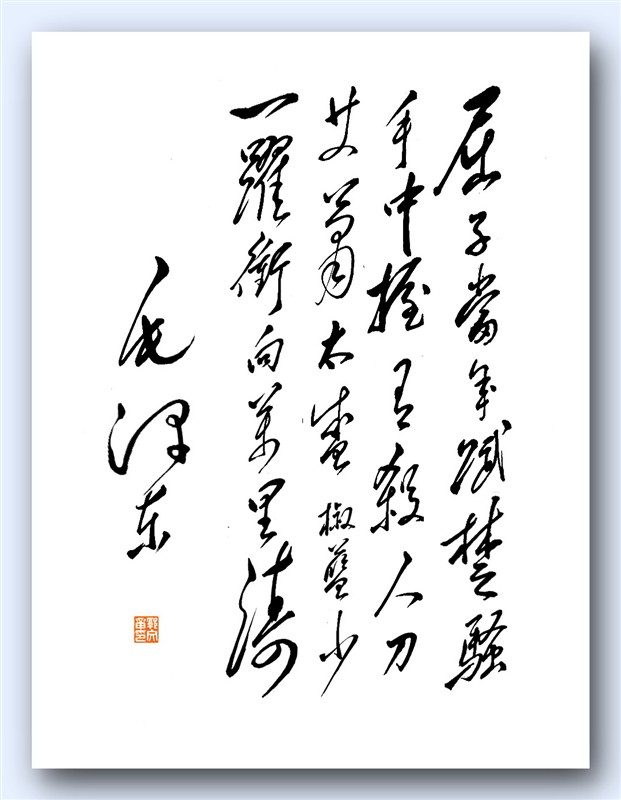 屈子當年賦楚騷
手中握有殺人刀
艾蕭太盛椒蘭少
一躍衝向萬里濤
毛泽东